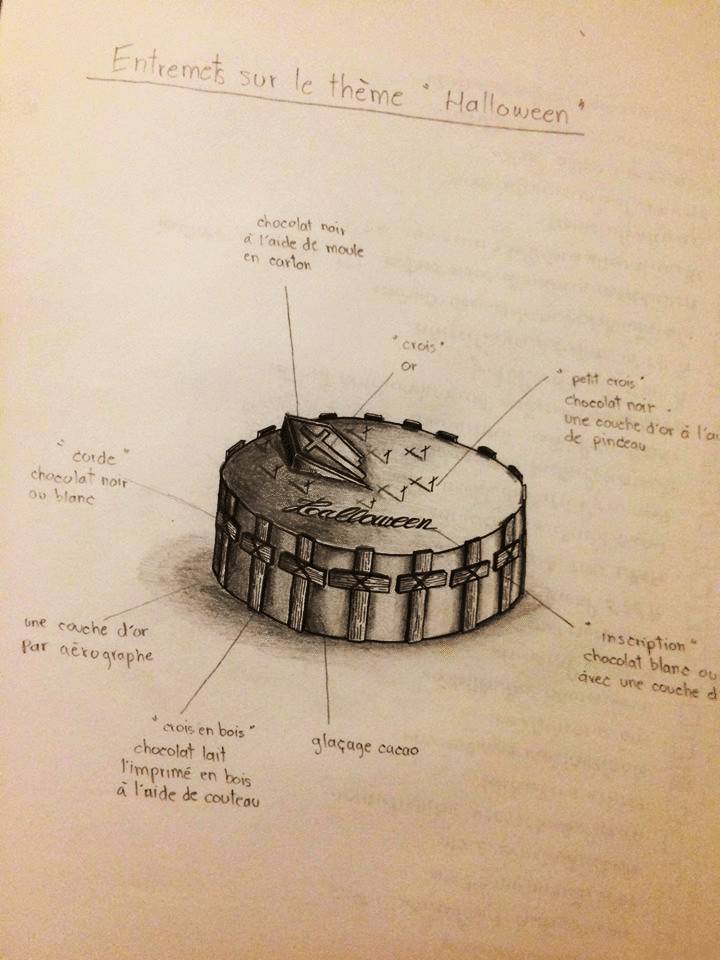 Entremets sur le thème " Halloween "
chocolat noir
à l'aide de moule
en carton
" crois "
or
" petit crois "
chocolat noir .
une couche d'or à l'
de pinceau
" corde "
chocolat noir
ou blanc
Halloween
une couche d'or
Par aérographe
" inscription "
chocolat blanc ou
avec une couche
" crois en bois "
chocolat lait
l'imprimé en bois
à l'aide de couteau
glaçage cacao